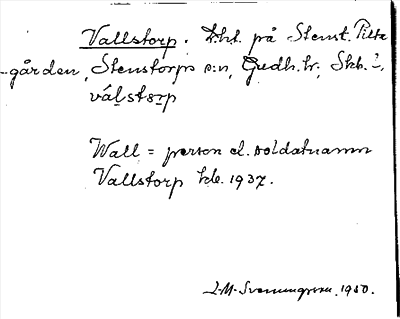 Vallstorp. Tht. på Stenst. Pilta
-gården, Stenstorps s:n, Gudh. hr, Skb. l.,
vál̲stɔrp
Wall = person el. soldatnamn
Vallstorp kb. 1937.
L-M. Svenungsson. 1950.